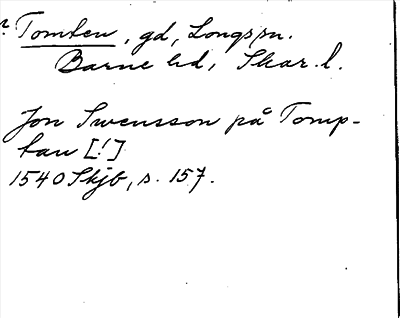 Tomten, gd, Longs sn.
Barne hd, Skar. l.
Jon Swensson på Tomp-
tan [!]
1540 Skjb, s. 157.